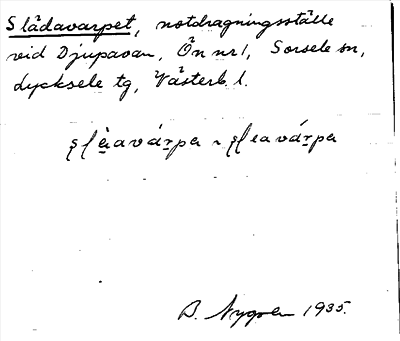 Slädavarpet, notdragningsställe
vid Djupavan, Ön nr 1, Sorsele sn,
Lycksele tg, Västerb. l.
B. Nygren 1935.